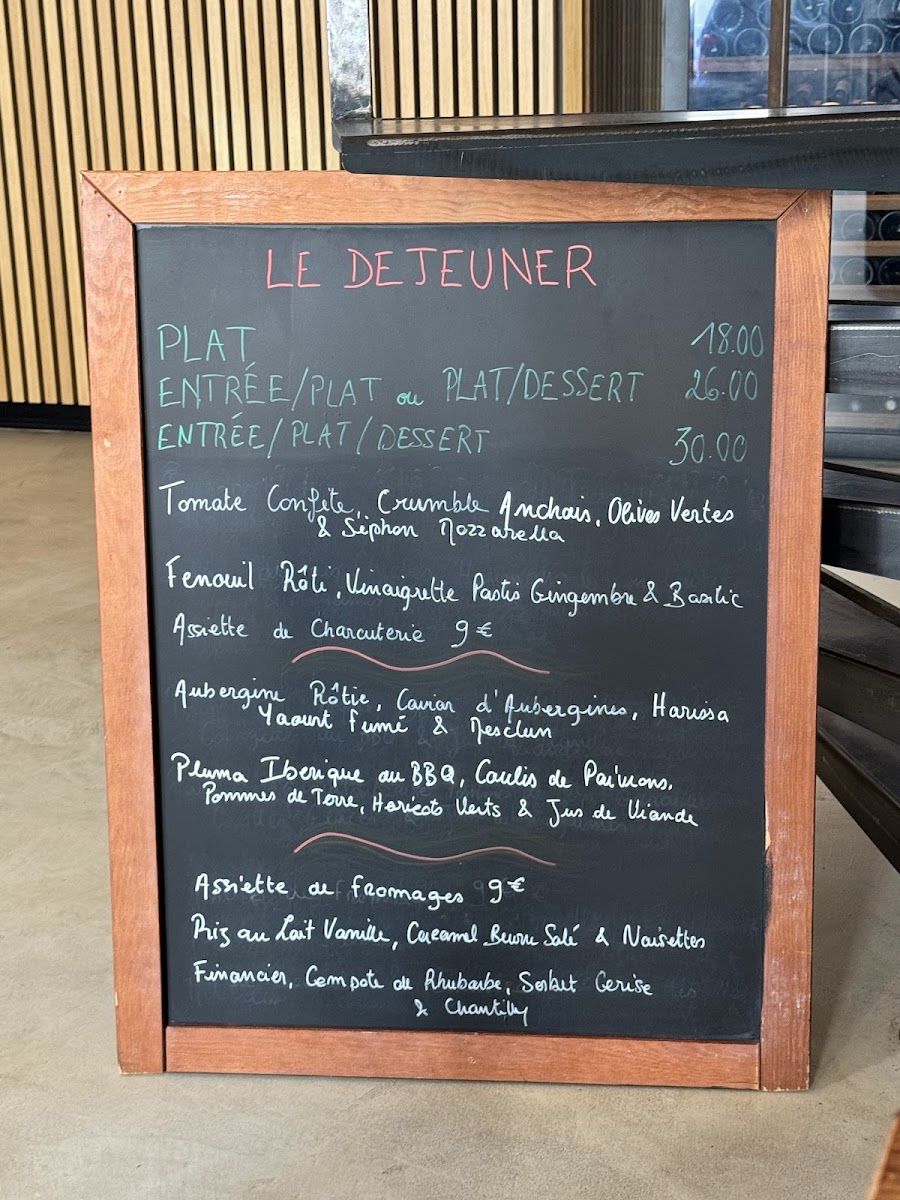 LE DEJEUNER
PLAT 18.00
ENTRÉE/PLAT ou PLAT/DESSERT 26.00
ENTRÉE/PLAT/DESSERT 30.00
Tomate Confite, Crumble Anchois, Olives Vertes
& Siphon Mozzarella
Fenouil Rôti, Vinaigrette Pastis Gingembre & Basilic
Assiette de Charcuterie 9€
Aubergine Rôtie, Caviar d'Aubergines, Harissa
Yaourt Fumé & Mesclun
Pluma Iberique au BBQ, Coulis de Poivrons,
Pommes de Terre, Haricots Verts & Jus de Viande
Assiette de Fromages 9€
Riz au Lait Vanille, Caramel Beurre Salé & Noisettes
Financier, Compote de Rhubarbe, Sorbet Cerise
& Chantilly